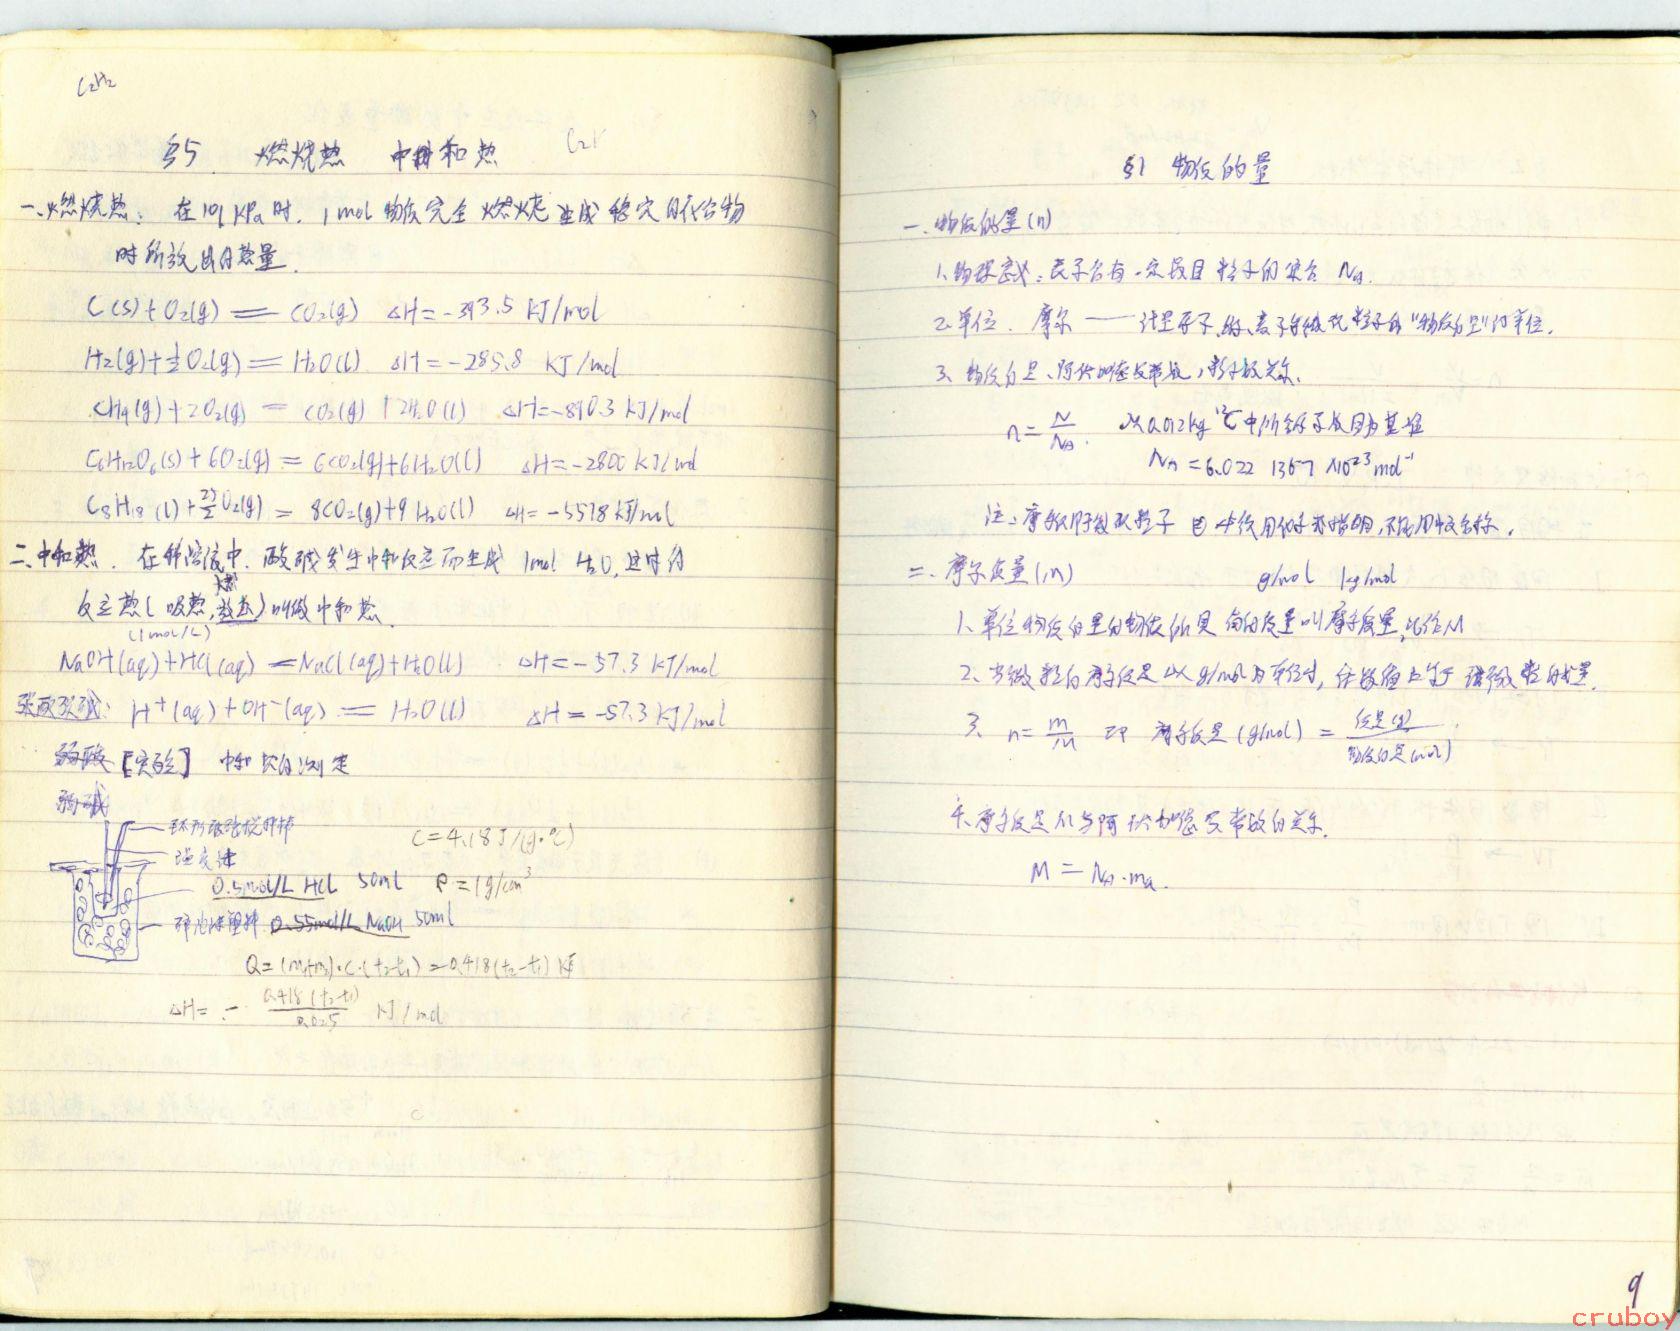 C2H2
§5 燃烧热 中和热
一、燃烧热: 在101KPa时, 1mol物质完全燃烧生成稳定的化合物
时所放出的热量.
C(s)+O2(g) == CO2(g) ΔH=-393.5 KJ/mol
H2(g)+½O2(g) == H2O(l) ΔH=-285.8 KJ/mol
CH4(g)+2O2(g) = CO2(g)+2H2O(l) ΔH=-890.3 KJ/mol
C6H12O6(s)+6O2(g) = 6CO2(g)+6H2O(l) ΔH=-2800 KJ/mol
C8H18(l)+25/2O2(g) = 8CO2(g)+9H2O(l) ΔH=-5518 KJ/mol
二、中和热. 在稀溶液中. 酸碱发生中和反应而生成 1mol H2O, 这时的
反应热(吸热,放热)叫做中和热.
(1mol/L)
NaOH(aq)+HCl(aq)=NaCl(aq)+H2O(l) ΔH=-57.3 KJ/mol
强酸强碱: H+(aq)+OH-(aq) == H2O(l) ΔH=-57.3 KJ/mol
弱酸 [实验] 中和热的测定
弱碱
环形玻璃搅拌棒 C=4.18J/(g·℃)
温度计
0.5mol/L HCl 50ml ρ=1g/cm³
碎泡沫塑料 0.55mol/L NaOH 50ml
Q=(m1+m2)·C·(t2-t1)=0.418(t2-t1) KJ
ΔH= - 0.418(t2-t1)/0.025 KJ/mol
§1 物质的量
一、物质的量(n)
1.物理意义: 表示含有一定数目粒子的集合 NA.
2.单位. 摩尔——计量原子、分子、离子等微观粒子的"物质的量"的单位.
3.物质的量、阿伏加德罗常数、粒子数关系.
n=N/NA. 以0.012kg 12C中所含原子数目为基准
NA=6.0221367×10^23mol-1
注: 摩尔只用于微观粒子 用化学式指明,不能用中文名称.
二、摩尔质量(M) g/mol kg/mol
1.单位物质的量的物质所具有的质量叫摩尔质量,记作M
2.当微粒的摩尔质量以g/mol为单位时,在数值上等于该微粒的式量.
3. n=m/M 即 摩尔质量(g/mol)=质量(g)/物质的量(mol)
4.摩尔质量M与阿伏加德罗常数的关系.
M=NA·ma.
9
cruboy